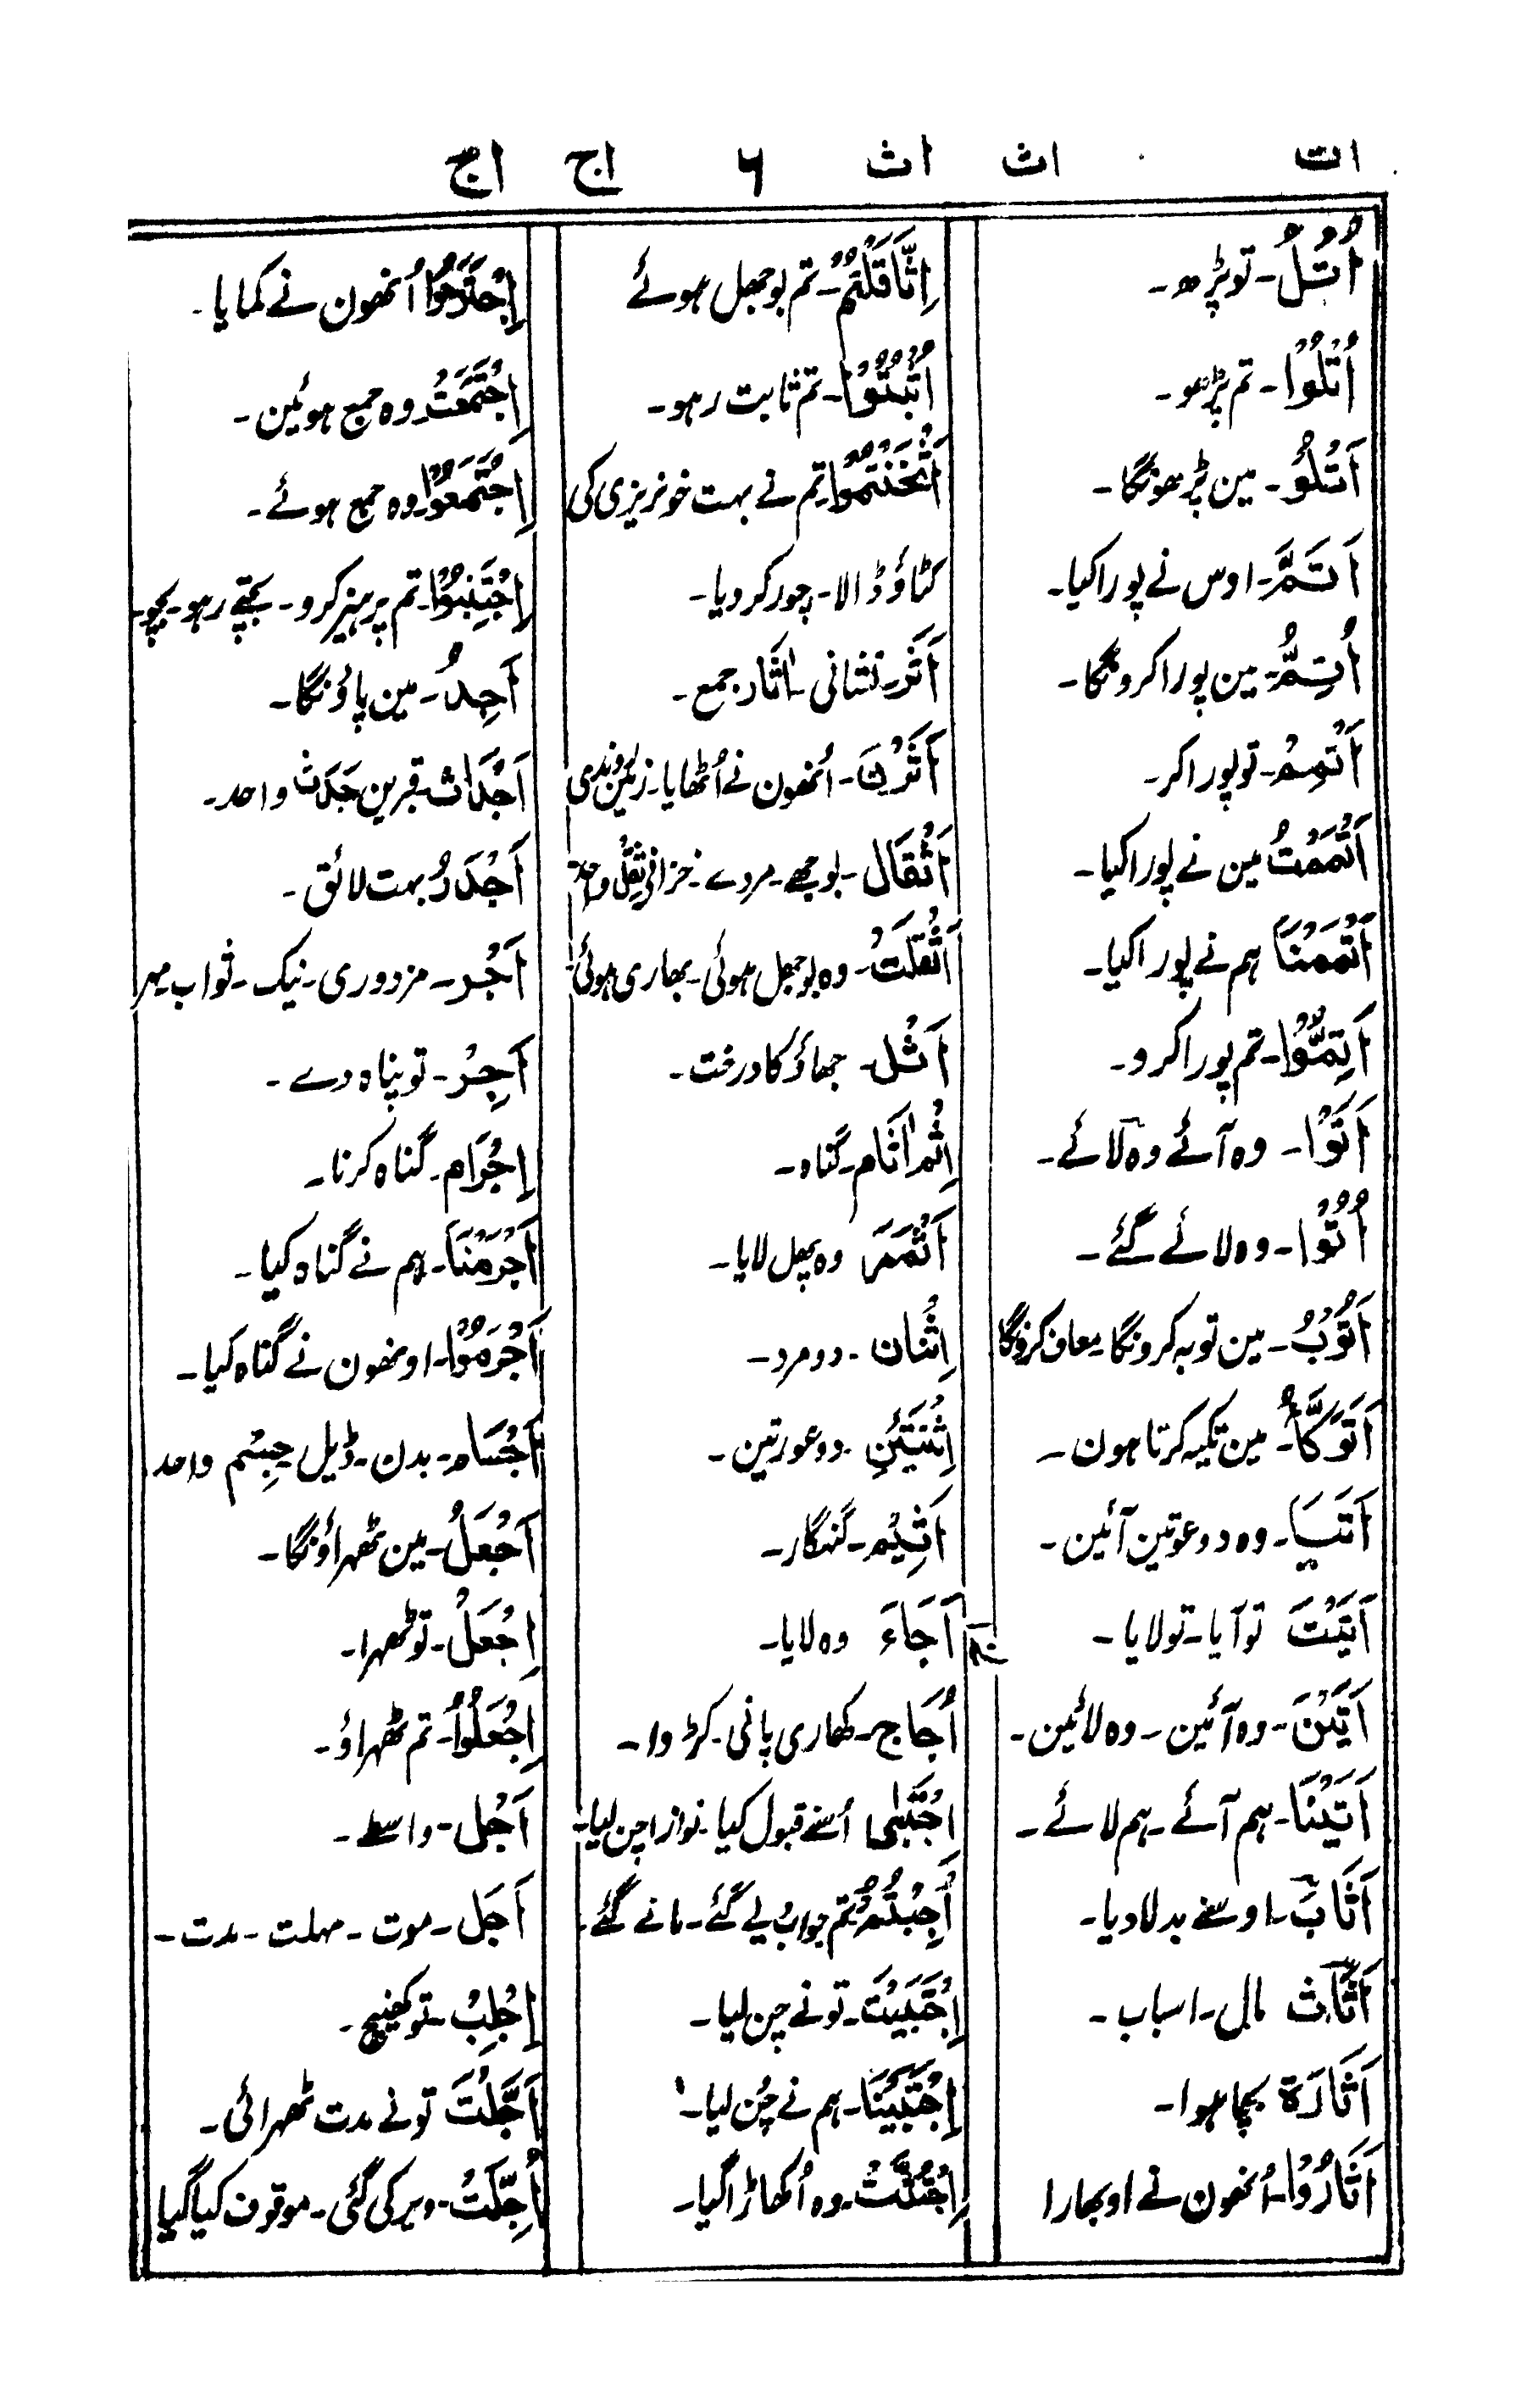 ات اث اث ۶ اج اج
اُتْلُ۔ تو پڑھ۔
اُتْلُوْا۔ تم پڑھو۔
اَتْلُوْ۔ مین پڑھونگا۔
اَتَمَّ۔ اوس نے پورا کیا۔
اُتِمُّ۔ مین پورا کرونگا۔
اَتْمِمْ۔ تو پورا کر۔
اَتْمَمْتُ مین نے پورا کیا۔
اَتْمَمْنَا ہم نے پورا کیا۔
اَتِمُّوْا۔ تم پورا کرو۔
اَتَوْا۔ وہ آئے وہ لائے۔
اُتُوْا۔ وہ لائے گئے۔
اَتُوْبُ۔ مین توبہ کرونگا۔ معاف کرونگا
اَتَوَكَّأُ۔ مین تکیہ کرتا ہون۔
اَتَيَا۔ وہ دو عوتین آئین۔
اَتَيْتَ تو آیا۔ تو لایا۔
اَتَيْنَ۔ وہ آئین۔ وہ لائین۔
اَتَيْنَا۔ ہم آئے۔ ہم لائے۔
اَثَابَ۔ اوسنے بدلا دیا۔
اَثَاث مال۔ اسباب۔
اَثَارَة بچا ہوا۔
اَثَارُوْا۔ اُنھون نے اوبھارا
اِثَّاقَلْتُمْ۔ تم بوجھل ہوئے
اُثْبُتُوْا۔ تم ثابت رہو۔
اَثْخَنْتُمُوْا۔ تم نے بہت خونریزی کی
کٹاؤ ڈالا۔ چور کر دیا۔
اَثَر۔ نشانی۔ اٰثار جمع۔
اَثَرْنَ۔ اُنھون نے اُٹھایا۔ زمین روندی
اَثْقَال۔ بوجھے۔ مردے۔ خزانے ثِقْل واحد
اَثْقَلَتْ۔ وہ بوجھل ہوئی۔ بھاری ہوئی۔
اَثْل۔ جھاؤ کا درخت۔
اِثْم اَثَام۔ گناہ۔
اَثْمَرَ وہ پھل لایا۔
اِثْنَان۔ دو مرد۔
اِثْنَتَيْنِ۔ دو عورتین۔
اَثِيْم۔ گنہگار۔
اَجَاءَ وہ لایا۔
اُجَاج۔ کھاری پانی۔ کڑوا۔
اِجْتَبٰى اُسنے قبول کیا۔ نوازا چن لیا۔
اُجِبْتُمْ۔ تم جواب دیے گئے۔ مانے گئے۔
اِجْتَبَيْتَ۔ تو نے چن لیا۔
اِجْتَبَيْنَا۔ ہم نے چُن لیا۔
اِجْتُثَّتْ۔ وہ اُکھاڑا گیا۔
اِجْتَرَحُوْا اُنھون نے کمایا۔
اِجْتَمَعَتْ۔ وہ جمع ہوئین۔
اِجْتَمَعُوْا۔ وہ جمع ہوئے۔
اِجْتَنِبُوْا۔ تم پرہیز کرو۔ بچتے رہو۔ بچو۔
اَجِدُ۔ مین پاؤنگا۔
اَجْدَاث۔ قبرین جَدَث واحد۔
اَجْدَرُ بہت لائق۔
اَجْر۔ مزدوری۔ نیک۔ ثواب۔ مہر
اَجِرْ۔ تو پناہ دے۔
اِجْرَام۔ گناہ کرنا۔
اَجْرَمْنَا۔ ہم نے گناہ کیا۔
اَجْرَمُوْا۔ اونھون نے گناہ کیا۔
اَجْسَام۔ بدن۔ ڈیل۔ جِسْم واحد
اَجْعَلُ۔ مین ٹھہراؤنگا۔
اِجْعَلْ۔ تو ٹھہرا۔
اِجْعَلُوْا۔ تم ٹھہراؤ۔
اَجْل۔ واسطے۔
اَجَل۔ موت۔ مہلت۔ مدت۔
اِجْلِبْ۔ تو کھینچ۔
اَجَّلْتَ تو نے مدت ٹھہرائی۔
اُجِّلَتْ۔ دیر کی گئی۔ موقوف کیا گیا